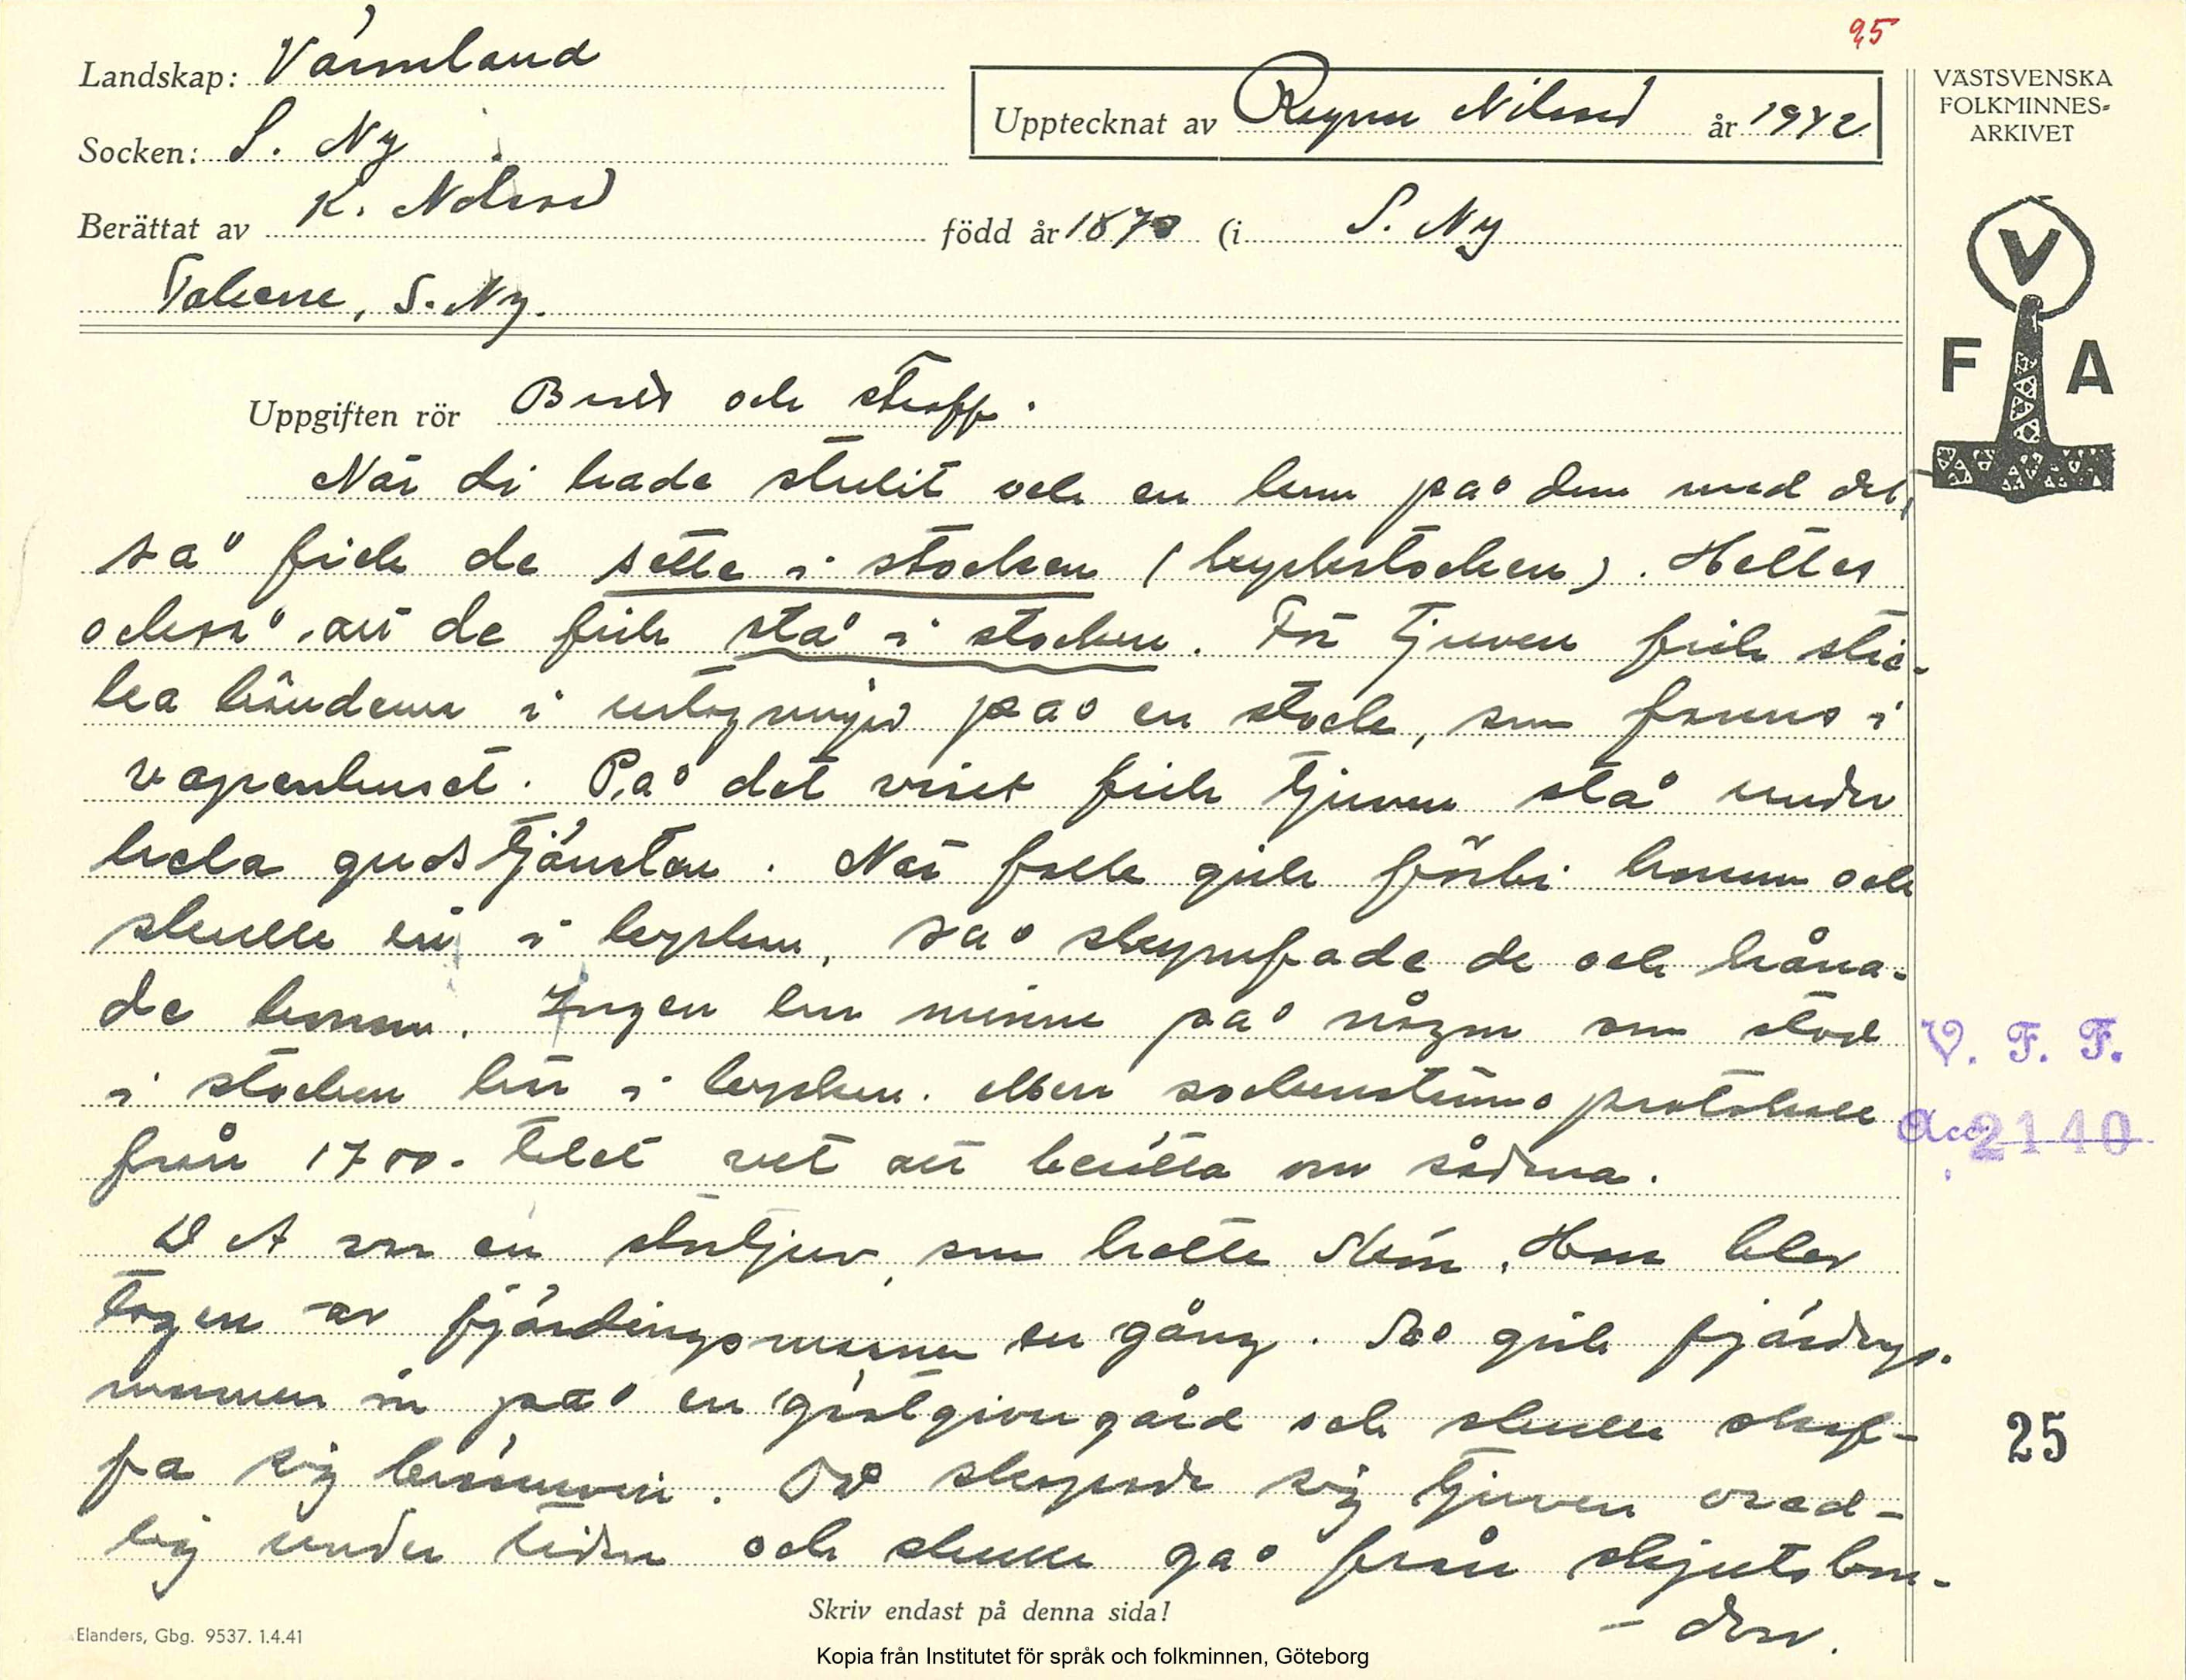 95
Landskap: Värmland
Socken: S. Ny
Upptecknat av Ragnar Nilsson år 1942
VÄSTSVENSKA
FOLKMINNES-
ARKIVET
Berättat av K. Nilsson född år 1870 (i S. Ny
S. Ny.
V
F A
Uppgiften rör Brott och straff.
När di hade stulit och en kom på dem med det,
så fick de sette i stocken (kyrkstocken). Hettes
också att de fick stå i stocken. För tjuven fick stic-
ka händerna i urtagninger på en stock, som fanns i
vapenhuset. På det viset fick tjuven stå under
hela gudstjänsten. När folk gick förbi honom och
skulle in i kyrkan, så skympfade de och håna-
de honom. Ingen har minne på någon som stod
i stocken här i kyrkan. Men sockenstämmoprotokoll
från 1700-talet vet att berätta om sådana.
Det var en stortjuv, som hette Skön. Han blev
tagen av fjärdingsmannen en gång. Så gick fjärdings-
mannen in på en gästgivergård och skulle skaf-
fa sig brännvin. Då skapade sig tjuven oräd-
lig under tiden och skulle gå från skjutsbon-
den.
V. F. F.
Acc. 2140
25
Skriv endast på denna sida!
Elanders, Gbg. 9537. 1.4.41
Kopia från Institutet för språk och folkminnen, Göteborg